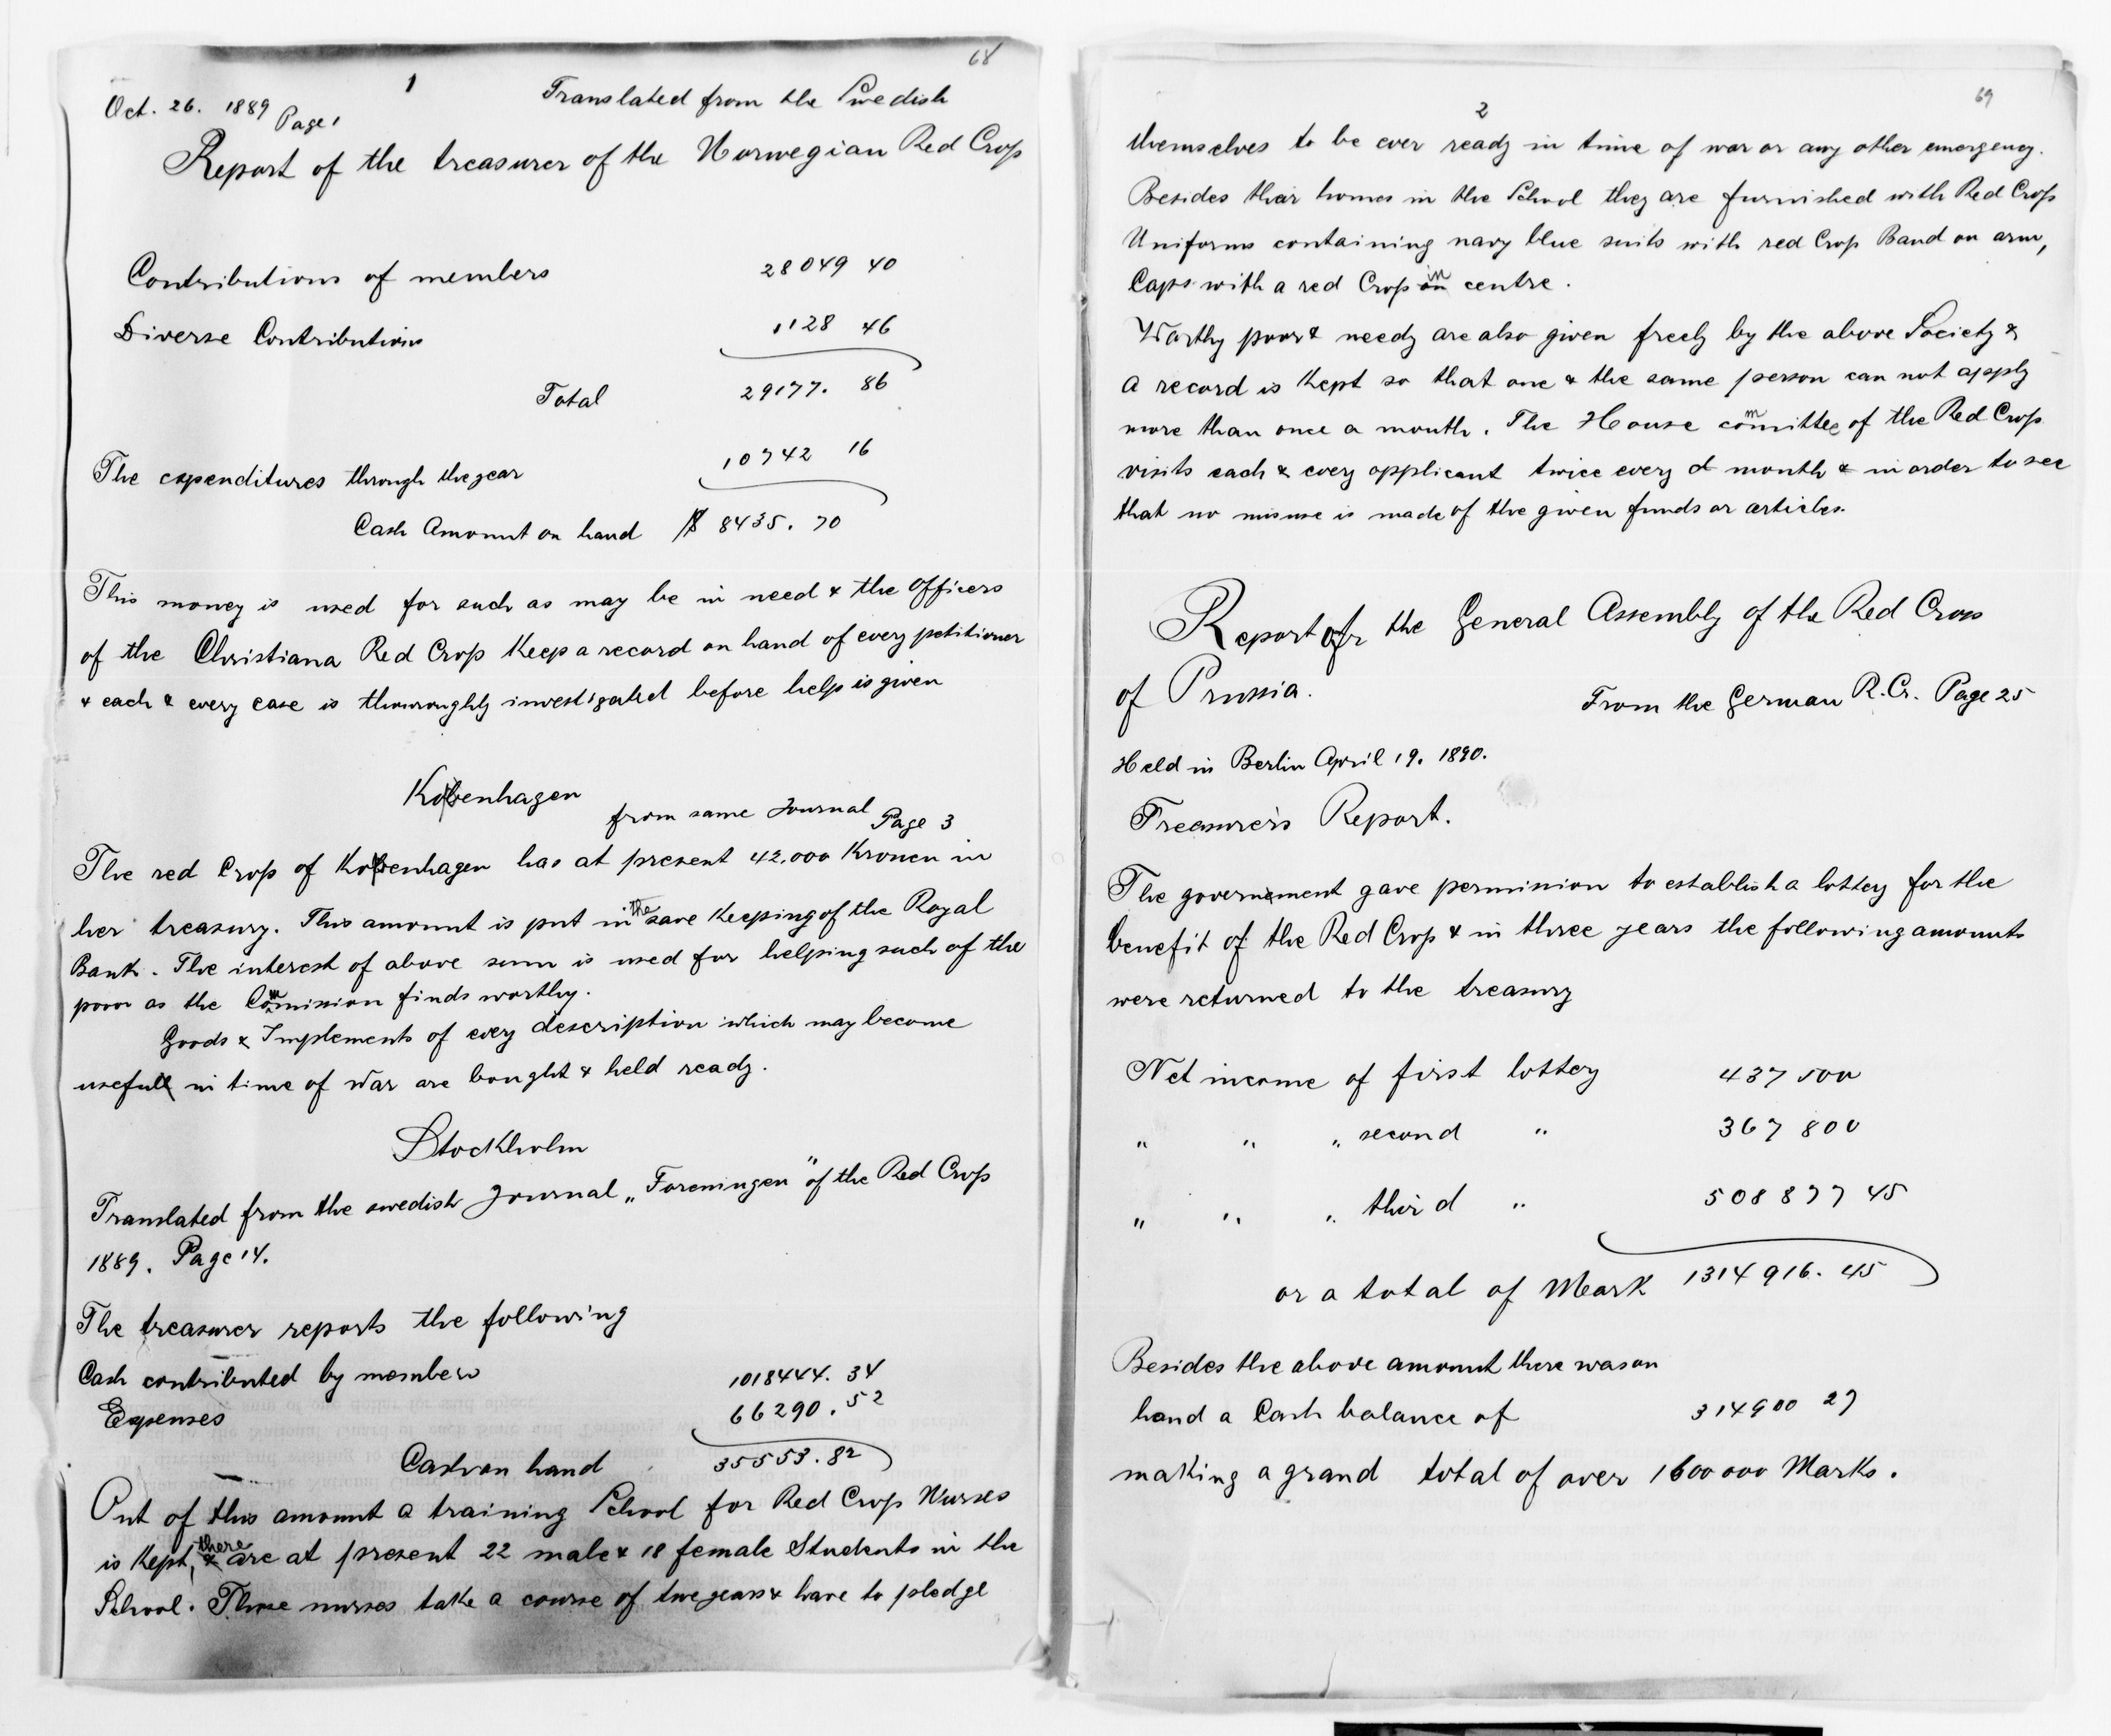 68
1
Oct. 26. 1889 Page 1 Translated from the Swedish
Report of the treasurer of the Norwegian Red Cross
Contributions of members 28049 40
Diverse Contributions 1128 46
Total 29177. 86
The expenditures through the year 10742 16
Cash Amount on hand $ 8435. 70
This money is used for such as may be in need & the officers
of the Christiana Red Cross Keep a record on hand of every petitioner
& each & every case is thouroughly investigated before help is given
Kobenhagen
from same Journal Page 3
The red Cross of Kobenhagen has at present 42.000 Kronen in
her treasury. This amount is put in the save Keeping of the Royal
Bank. The interest of above sum is used for helping such of the
poor as the Commission finds worthy.
Goods & Implements of every description which may become
usefull in time of War are bought & held ready.
Stockholm
Translated from the swedish Journal „Foreningen" of the Red Cross
1889. Page 14.
The treasurer reports the following
Cash contributed by members 1018444. 34
Expenses 66290. 52
Cash on hand 35553. 82
Out of this amount a training School for Red Cross Nurses
is Kept, & there are at present 22 male & 18 female Students in the
School. These nurses take a course of two years & have to pledge
69
2
themselves to be ever ready in time of war or any other emergency.
Besides their homes in the School they are furnished with Red Cross
Uniforms containing navy blue suits with red Cross Band on arm,
Caps with a red Cross on in centre.
Worthy poor & needy are also given freely by the above Society &
a record is Kept so that one & the same person can not apply
more than once a month. The House committee of the Red Cross
visits each & every applicant twice every d month & in order to see
that no misuse is made of the given funds or articles.
Report of the General Assembly of the Red Cross
of Prussia. From the German R. Cr. Page 25
Held in Berlin April 19. 1890.
Treasurer's Report.
The governement gave permission to establish a lottery for the
benefit of the Red Cross & in three years the following amounts
were returned to the treasury
Net income of first lottery 437 500
" " " second " 367 800
" " " third " 508 877 45
or a total of Mark 1314 916. 45
Besides the above amount there was on
hand a Cash balance of 314900 27
making a grand total of over 1600 000 Marks.